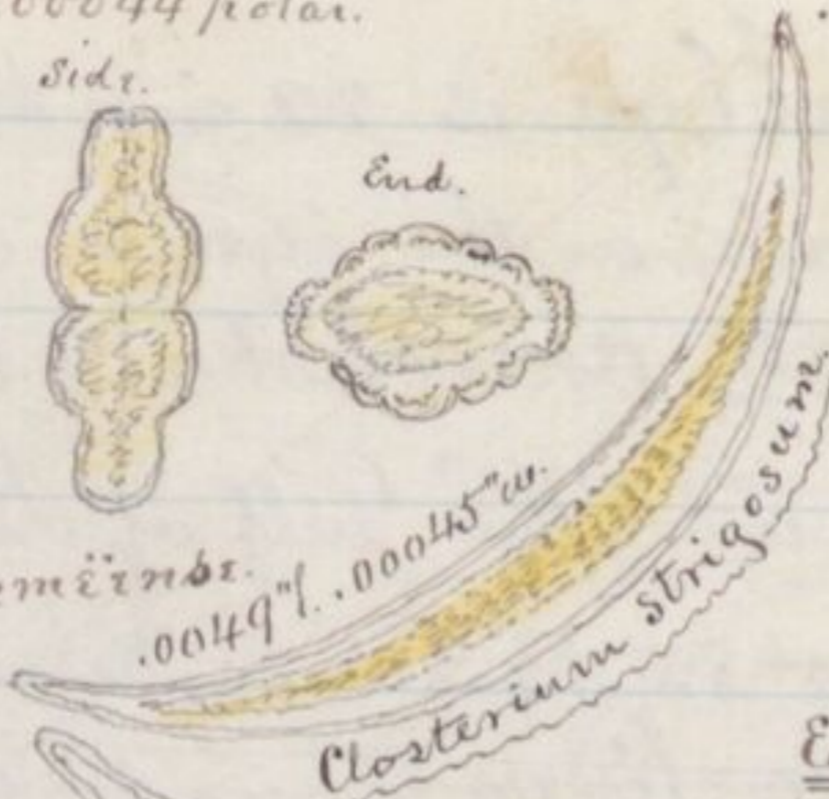 .00044 polar.
Side.
End.
.0049" l. .00045" w.
Closterium strigosum.